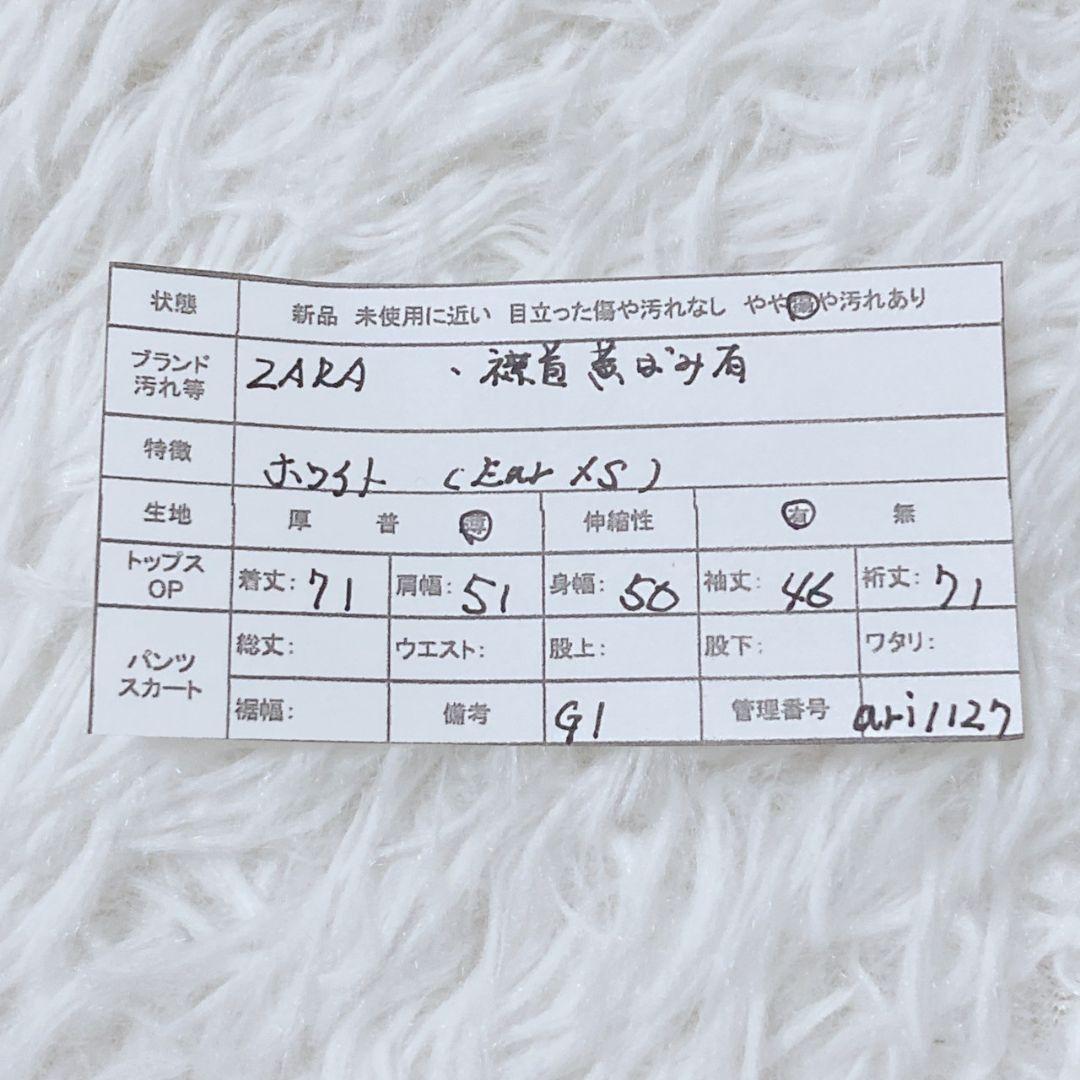 状態 新品 未使用に近い 目立った傷や汚れなし やや傷や汚れあり
ブランド
汚れ等 ZARA 、襟首黄ばみ有
特徴 ホワイト (Eur XS)
生地 厚 普 薄 伸縮性 有 無
トップス
OP 着丈: 71 肩幅: 51 身幅: 50 袖丈: 46 裄丈: 71
パンツ
スカート 総丈: ウエスト: 股上: 股下: ワタリ:
裾幅: 備考 G1 管理番号 ari1127